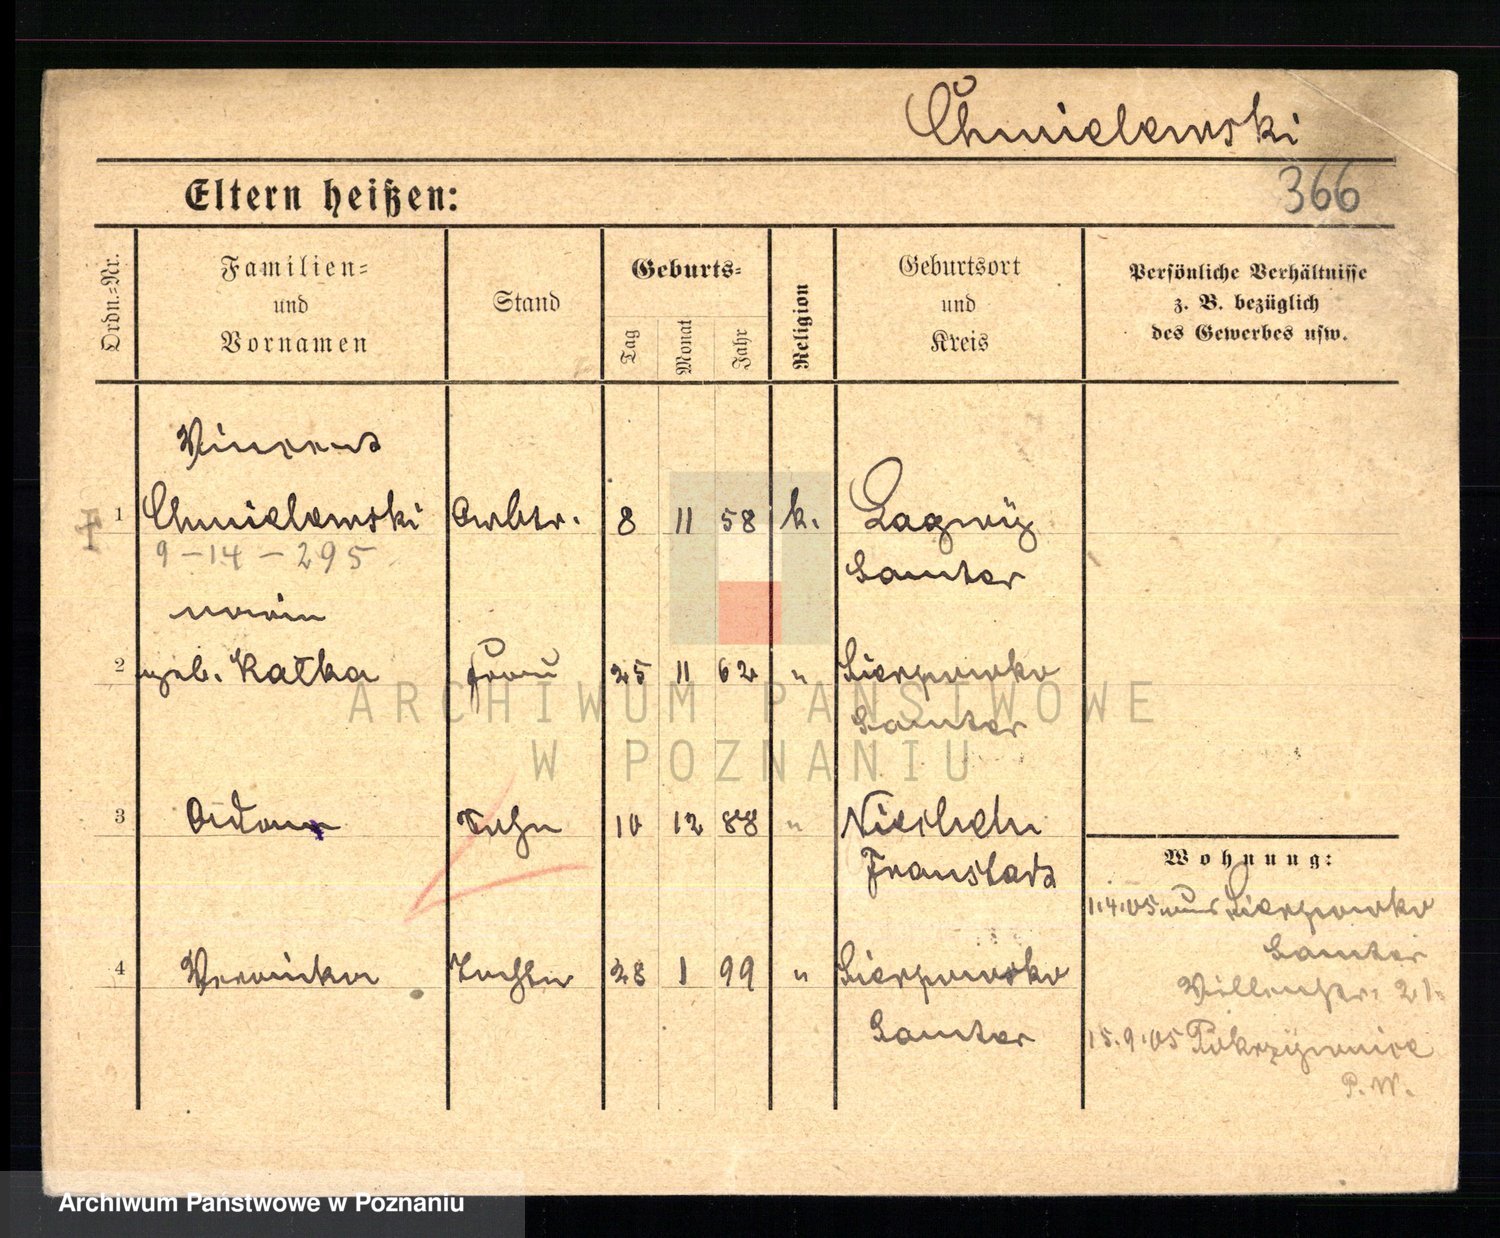 Chmielewski
366
Eltern heißen:
Ordn.=Nr.
Familien=
und
Vornamen
Stand
Geburts=
Tag
Monat
Jahr
Religion
Geburtsort
und
Kreis
Persönliche Verhältnisse
z. B. bezüglich
des Gewerbes usw.
Vincent
1 Chmielewski Arbtr. 8 11 58 k.
9-14-295
Samter
2 geb. Kałka Frau 25 11 62 " Sierpowko
Samter
3 Adam Sohn 10 12 88 "
Fraustadt
Wohnung:
1.4.05 aus Sierpowko
Samter
4 Veronika Tochter 28 1 99 " Sierpowko
Samter
15.9.05 Pokrzywnica
P. W.
ARCHIWUM PAŃSTWOWE
W POZNANIU
Archiwum Państwowe w Poznaniu